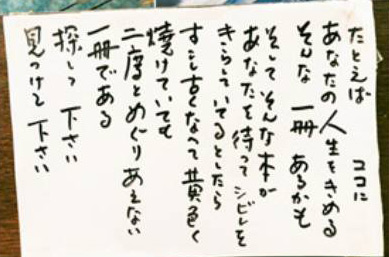 たとえば ココに
あなたの人生をきめる
そんな 一冊 あるかも
そして そんな本が
あなたを待って シビレを
きらしているとしたら
すこし古くなって 黄色く
焼けていても
二度とめぐりあえない
一冊である
探して下さい
見つけて 下さい